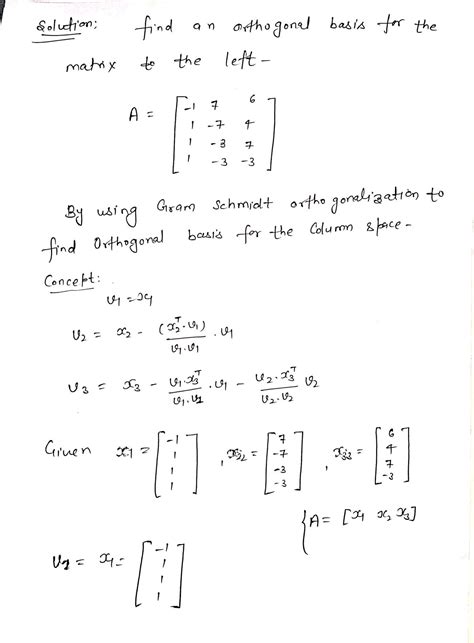 Solution: find an orthogonal basis for the
matrix to the left -
A = [-1 7 6
1 -7 4
1 -3 7
1 -3 -3]
By using Gram Schmidt orthogonalization to
find Orthogonal basis for the Column space -
Concept:
v1 = x1
v2 = x2 - (x2^T . v1) / v1 . v1 . v1
v3 = x3 - v1 . x3^T / v1 . v1 . v1 - v2 . x3^T / v2 . v2 v2
Given x1 = [-1 1 1 1], x2 = [7 -7 -3 -3], x3 = [6 4 7 -3]
{A = [x1 x2 x3]
v1 = x1 = [-1 1 1 1]